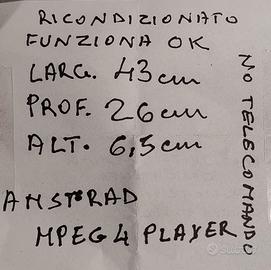 RICONDIZIONATO
FUNZIONA OK
LARG. 43 cm
PROF. 26 cm
ALT. 6,5 cm
AMSTRAD
MPEG 4 PLAYER
NO TELECOMANDO
subito